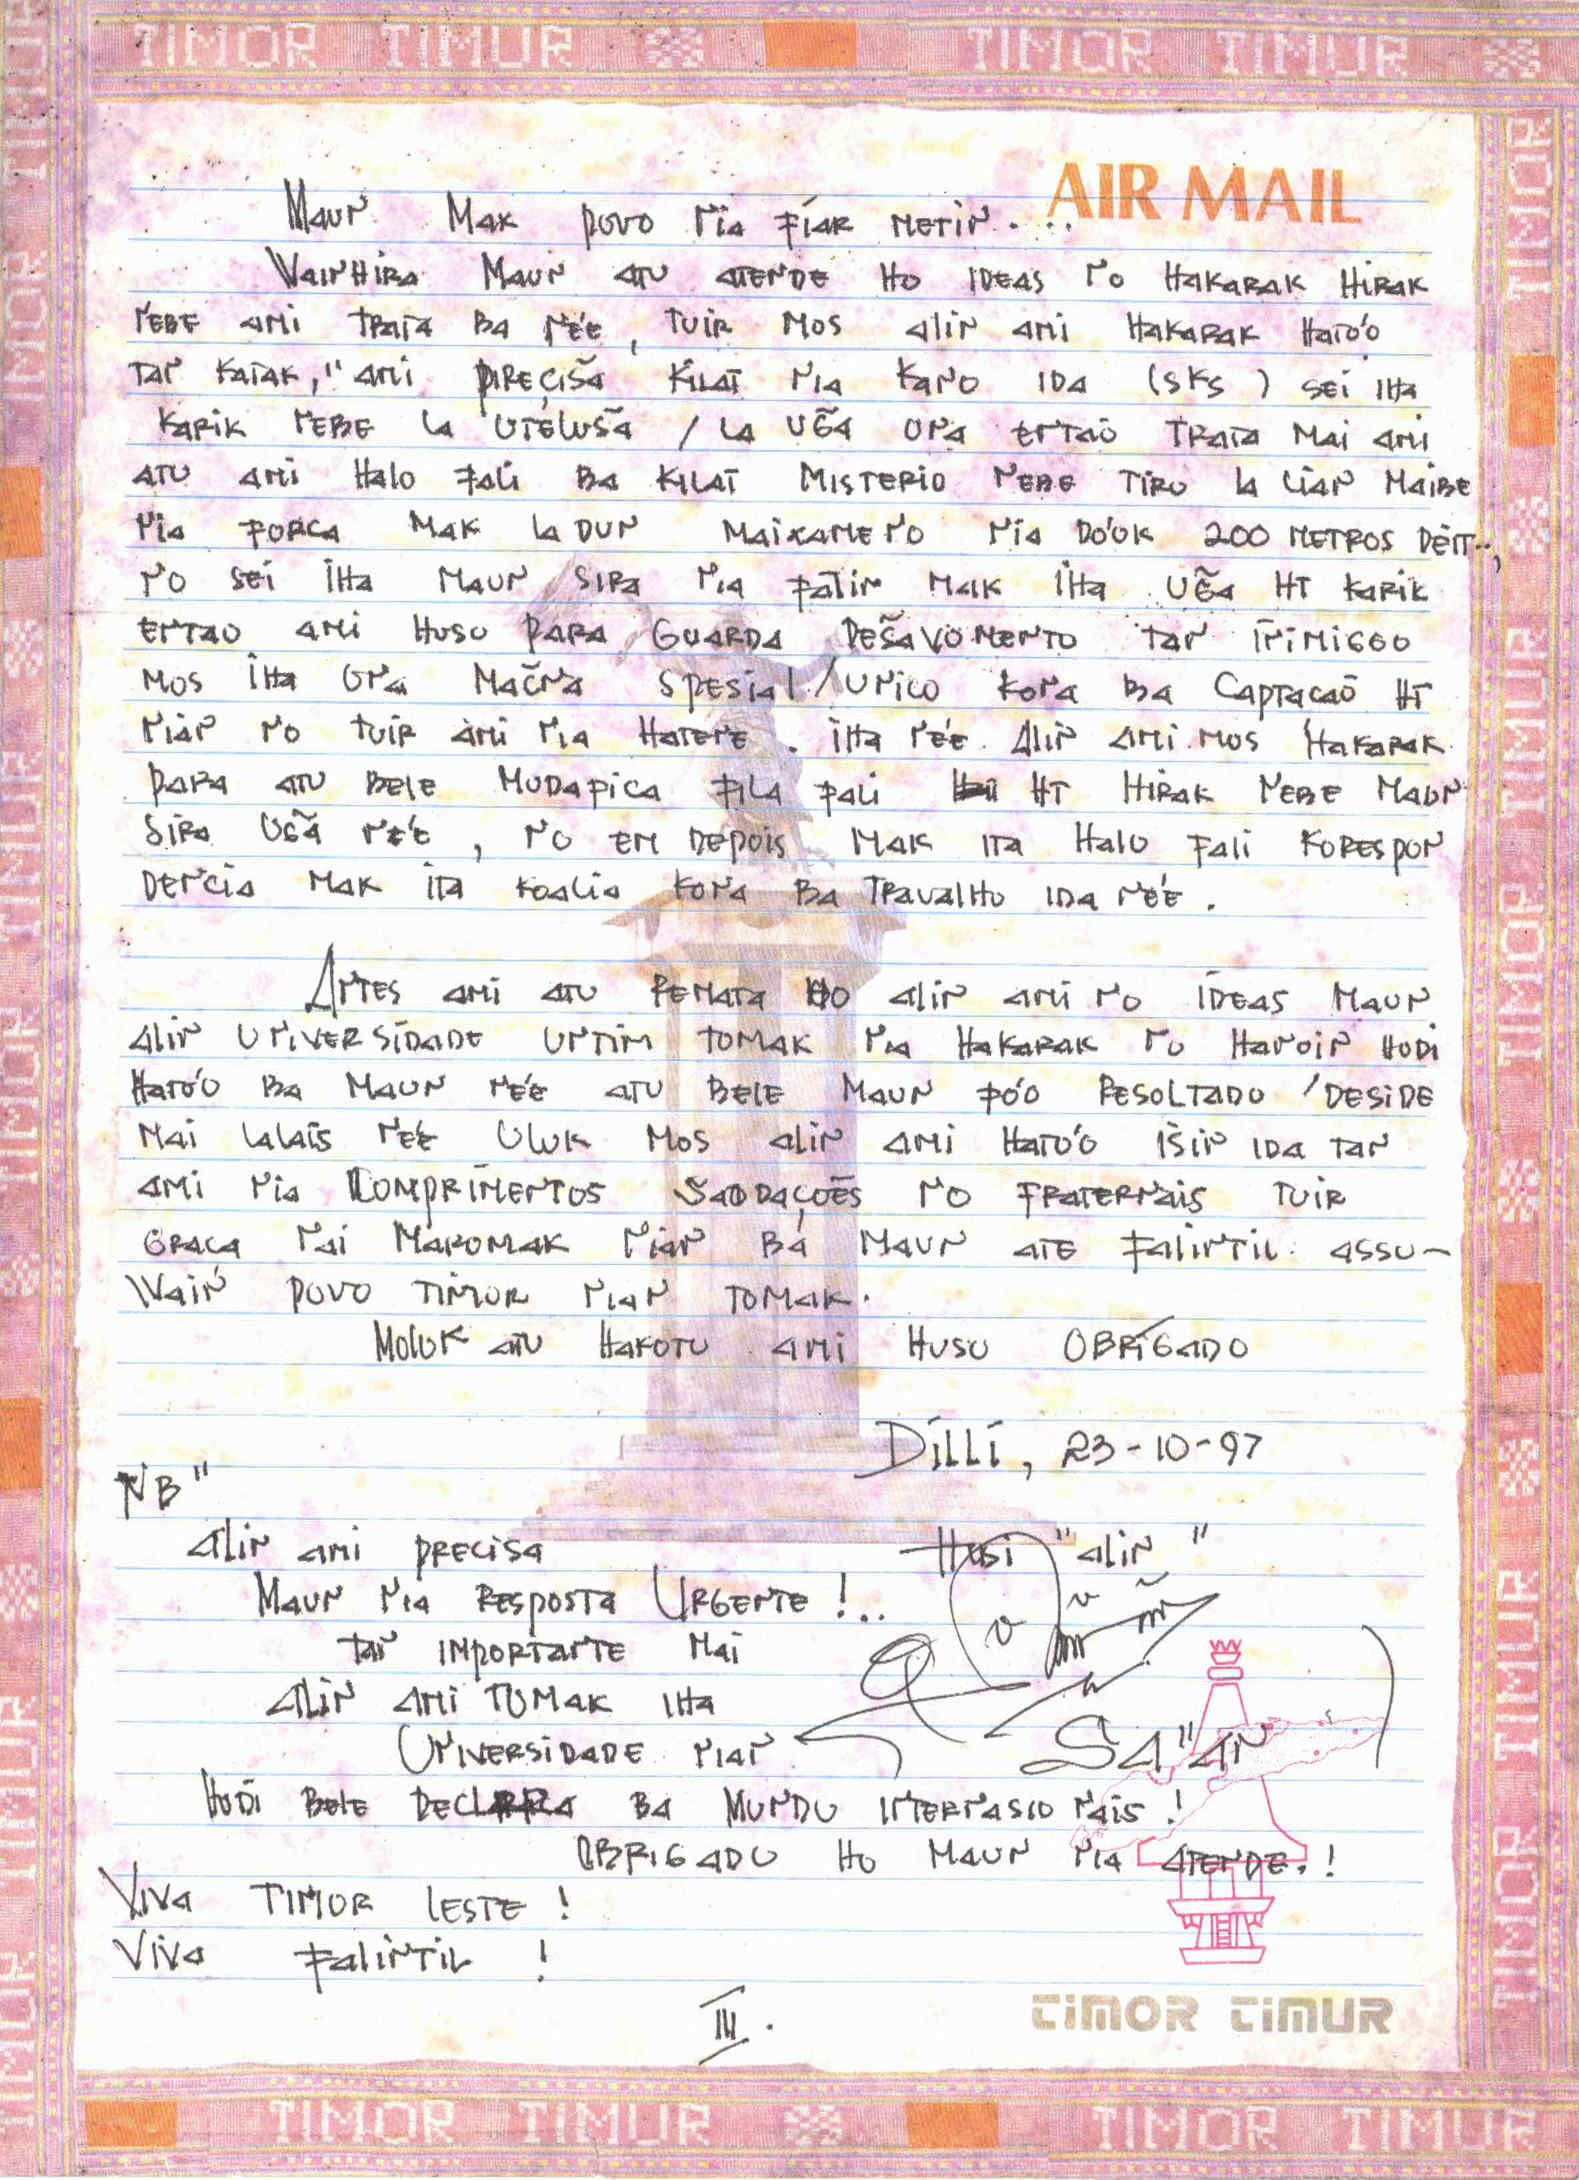 TIMOR TIMUR TIMOR TIMUR
AIR MAIL
Maun Mak povo nia fíar metin...
Wainhira Maun atu atende ho ideas no hakarak hirak
nebe ami trata ba ne'e, tuir mos alin ami hakarak hato'o
tan katak, " ami preçiša kilat nia kano ida (SKS) sei iha
karik nebe la utélušã / la uẽa ona entaõ trata mai ami
atu ami halo fali ba kilat misterio nebe tiru la lian maibe
nia forca mak la dun maixameno nia do'ok 200 metros déit..,
no sei iha maun sira nia fatin mak iha uẽa HT karik
entao ami huso para guarda dešavomento tan inimigoo
mos iha ona mačna spesial/unico kona ba captaçaõ HT
nian no tuir ami nia hatene. iha ne'e alin ami mos hakarak
para atu bele mudafica fila fali HT hirak nebe maun
sira uẽã ne'e, no em depois mak ita halo fali korespon
dencia mak ita koalia kona ba travalho ida ne'e.
Antes ami atu remata ho alin ami no ideas maun
alin universidade untim tomak nia hakarak no hanoin hodi
hato'o ba maun ne'e atu bele maun fó'o resoltado / deside
mai lalais ne'e uluk mos alin ami hato'o išin ida tan
ami nia comprimentos šaodações no fraternais tuir
graca nai maromak nian bá maun ate falintil assu-
wain povo timor nian tomak.
Moluk atu hakotu ami huso obrigado
Dilli, 23-10-97
NB "
alin ami precisa
Husi "alin"
Maun nia resposta urgente !..
tan importante mai
alin ami tomak iha
Universidade nian
SA"AN
hodi bele declara ba mundu internasionais !
obrigado ho maun nia atende. !
Viva Timor Leste !
Viva Falintil !
III.
TIMOR TIMUR
TIMOR TIMUR TIMOR TIMUR